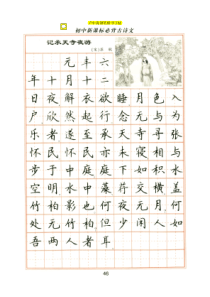 初中新课标必背古诗文
记承天寺夜游
元丰六
年十月十二
日夜解衣欲睡月色入
户欣然起行念无与为
乐者遂至承天寺寻张
怀民怀民亦未寝相与
步于中庭庭下如积水
空明水中藻荇交横盖
竹柏影也何夜无月何
处无竹柏但少闲人如
吾两人者耳